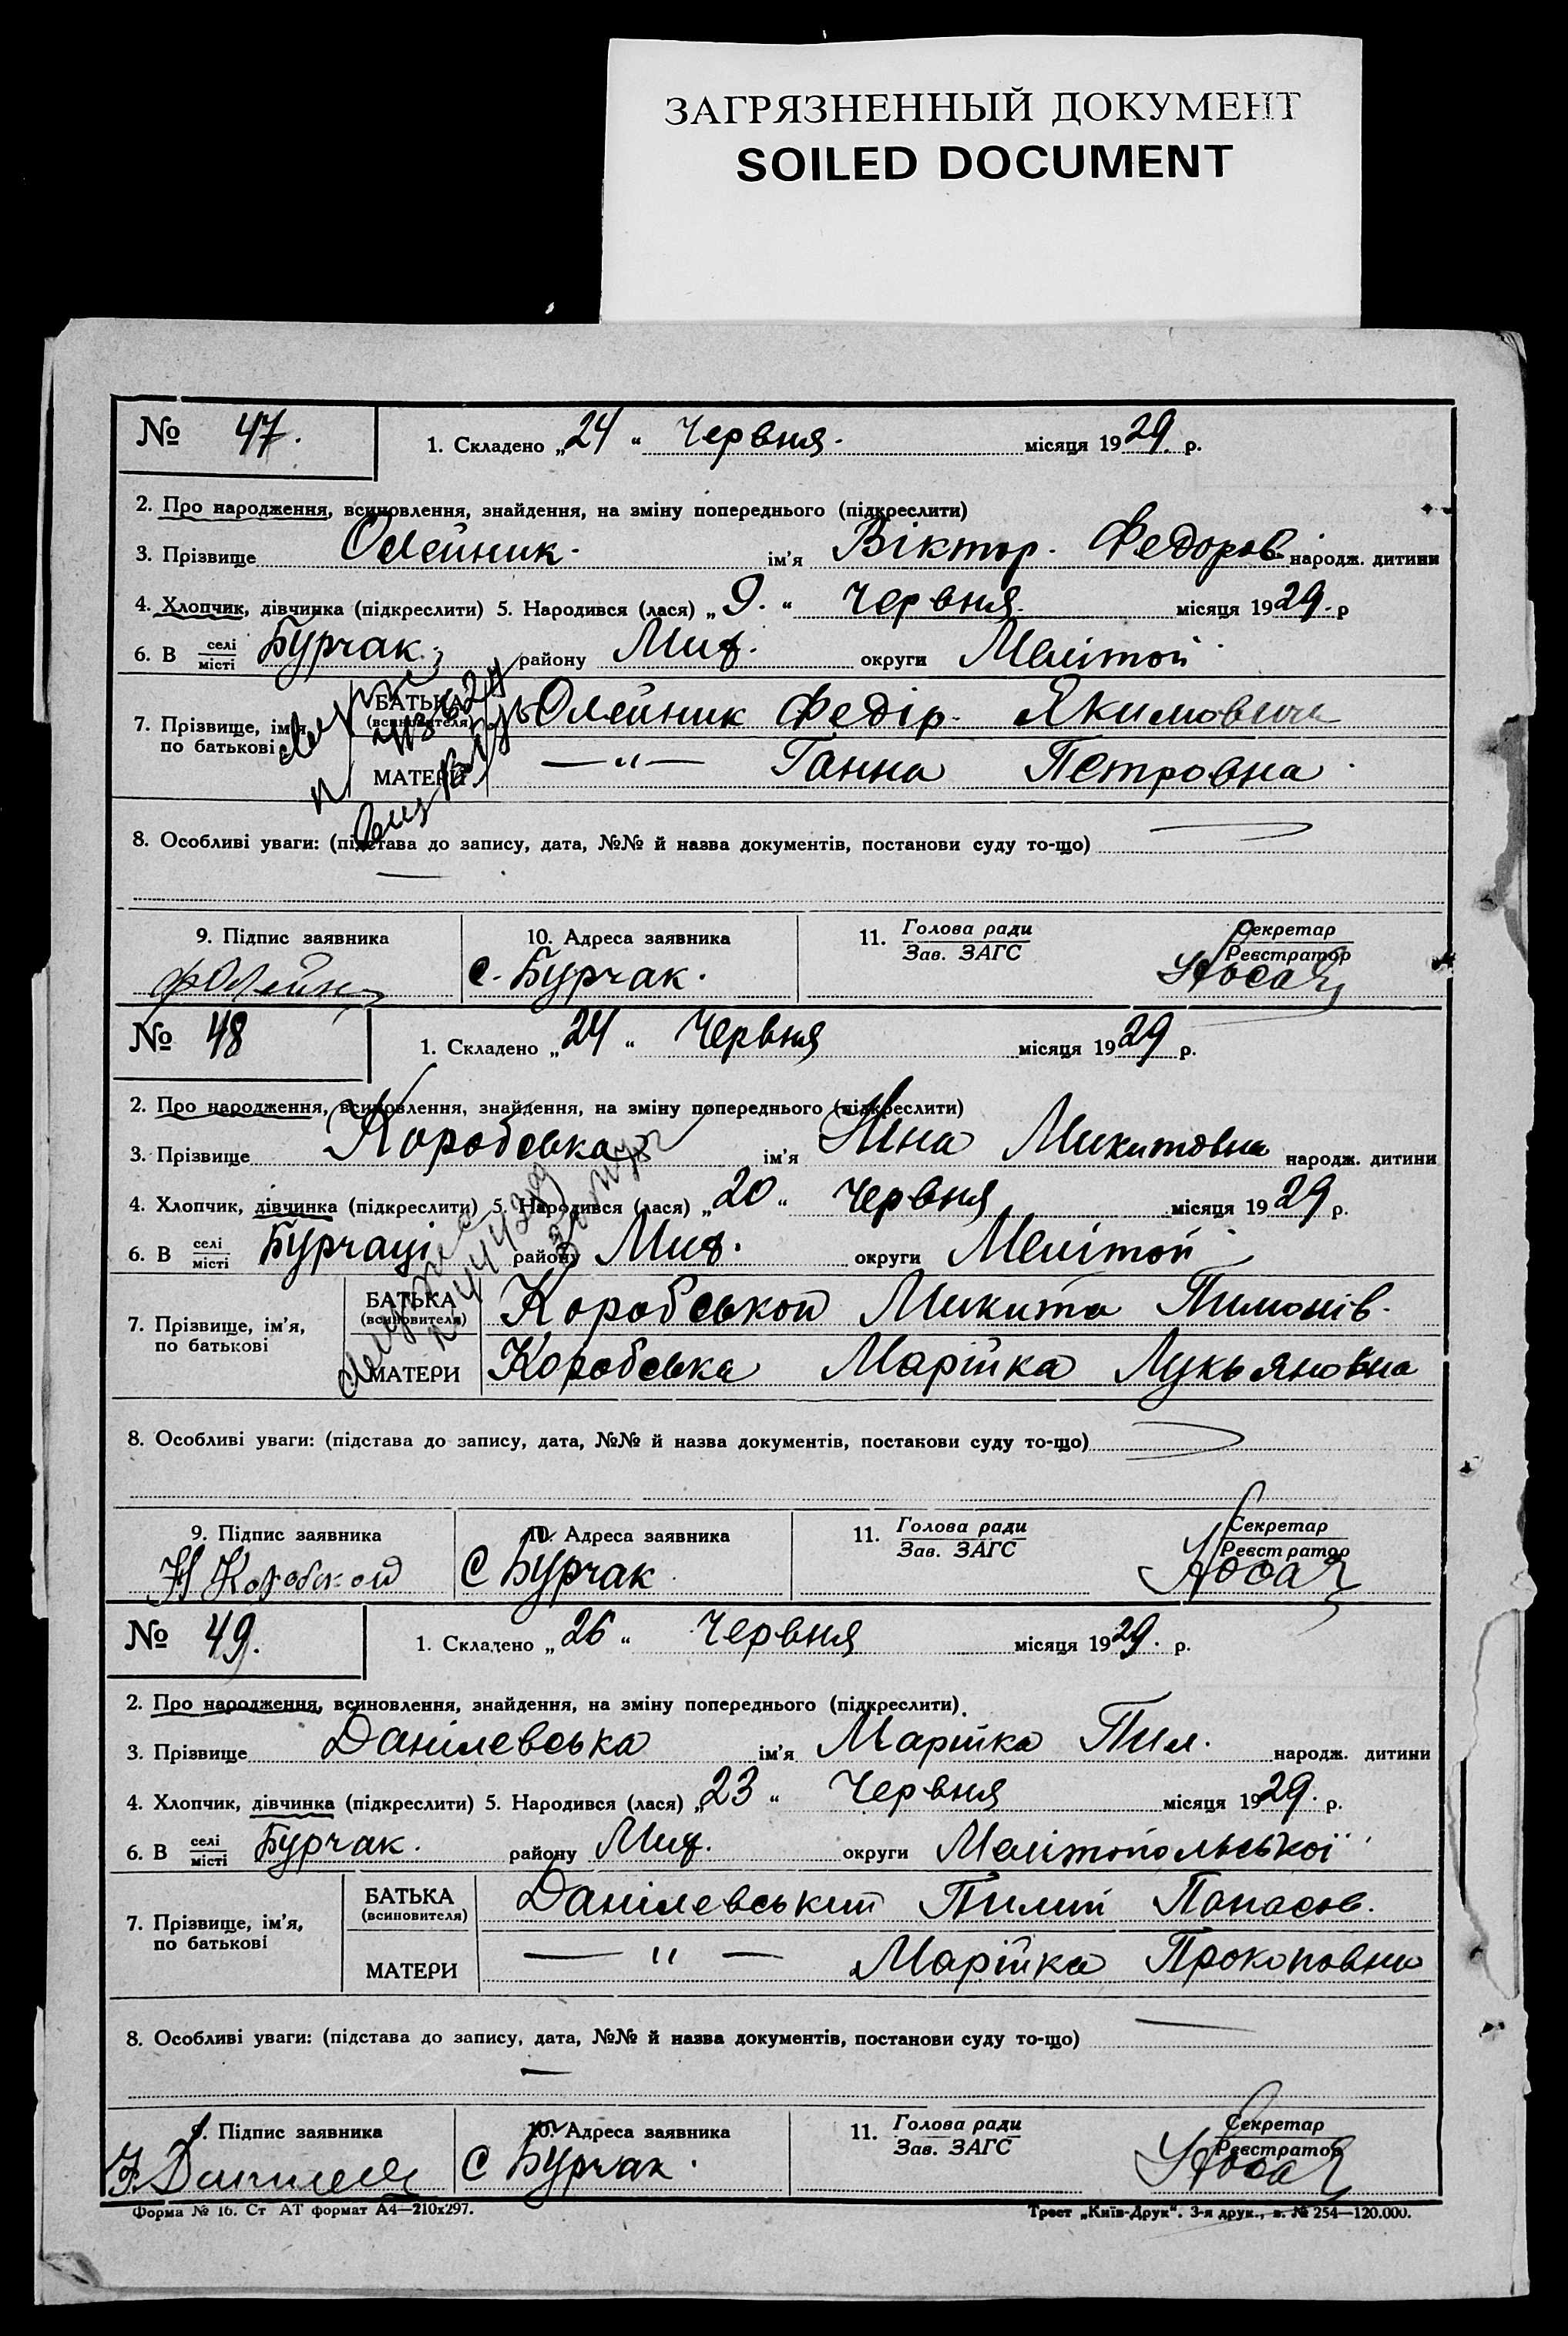 ЗАГРЯЗНЕННЫЙ ДОКУМЕНТ
SOILED DOCUMENT
№ 47.
1. Складено „24“ Червня. місяця 1929. р.
2. Про народження, всиновлення, знайдення, на зміну попереднього (підкреслити)
3. Прізвище Олейник. ім'я Віктор. Федоров. народж. дитини
4. Хлопчик, дівчинка (підкреслити) 5. Народився (лася) „9.“ Червня. місяця 1929. р
6. В селі/місті Бурчак. району Мих. округи Мелітоп.
7. Прізвище, ім'я, по батькові
БАТЬКА (всиновителя) Олейник Федір. Якимович
МАТЕРИ —„— Ганна Петровна.
8. Особливі уваги: (підстава до запису, дата, №№ й назва документів, постанови суду то-що)
9. Підпис заявника
10. Адреса заявника
11. Голова ради / Зав. ЗАГС
Секретар / Реєстратор
с. Бурчак.
№ 48
1. Складено „24“ Червня місяця 1929 р.
2. Про народження, всиновлення, знайдення, на зміну попереднього (підкреслити)
3. Прізвище Коробська ім'я Ніна Микитовна народж. дитини
4. Хлопчик, дівчинка (підкреслити) 5. Народився (лася) „20“ Червня місяця 1929 р.
6. В селі/місті Бурчаці району Мих. округи Мелітоп
7. Прізвище, ім'я, по батькові
БАТЬКА (всиновителя) Коробськой Микита Пимонів.
МАТЕРИ Коробська Марійка Лукьяновна
8. Особливі уваги: (підстава до запису, дата, №№ й назва документів, постанови суду то-що)
9. Підпис заявника
10. Адреса заявника
11. Голова ради / Зав. ЗАГС
Секретар / Реєстратор
Н Коробской
С Бурчак
№ 49.
1. Складено „26“ Червня місяця 1929. р.
2. Про народження, всиновлення, знайдення, на зміну попереднього (підкреслити).
3. Прізвище Данілевська ім'я Марійка Пил. народж. дитини
4. Хлопчик, дівчинка (підкреслити) 5. Народився (лася) „23“ Червня місяця 1929. р.
6. В селі/місті Бурчак. району Мих. округи Мелітопольської
7. Прізвище, ім'я, по батькові
БАТЬКА (всиновителя) Данілевський Пилип Панасов.
МАТЕРИ —„— Марійка Прокоповна
8. Особливі уваги: (підстава до запису, дата, №№ й назва документів, постанови суду то-що)
9. Підпис заявника
10. Адреса заявника
11. Голова ради / Зав. ЗАГС
Секретар / Реєстратор
С Бурчак.
Форма № 16. Ст АТ формат А4—210х297.
Трест „Київ-Друк“. 3-я друк., з. № 254—120.000.